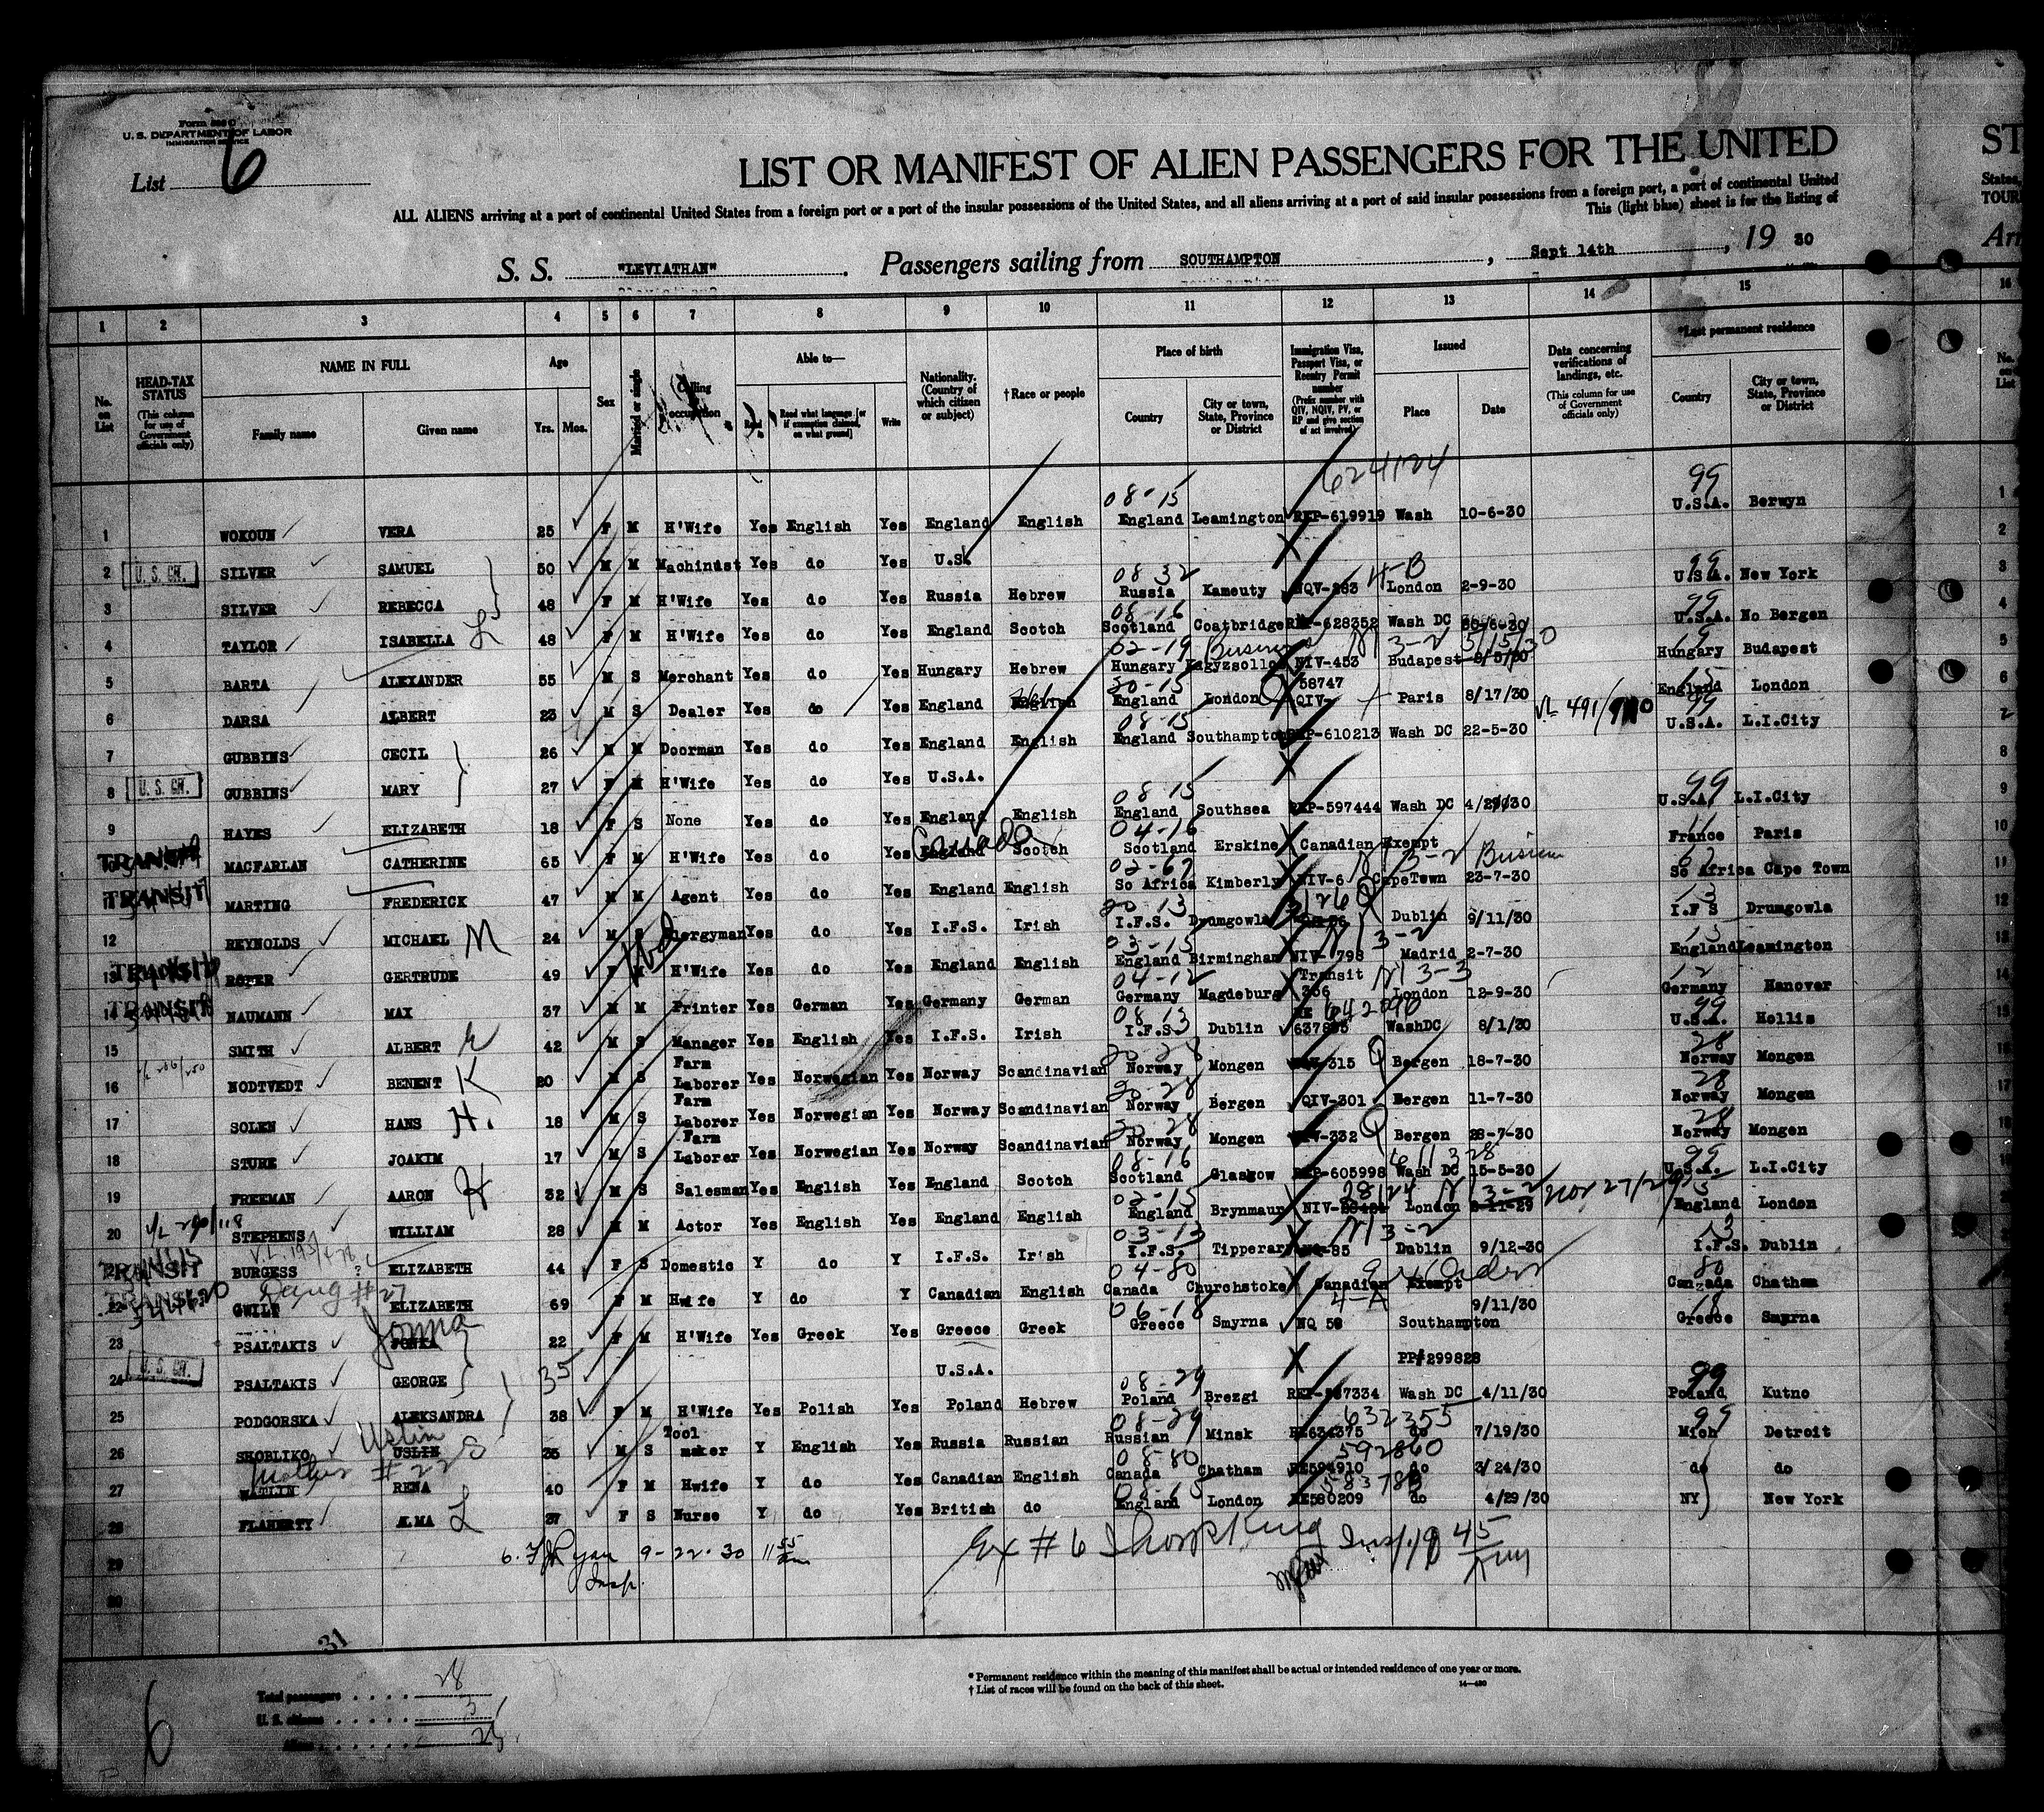 Form 500 C
U. S. DEPARTMENT OF LABOR
IMMIGRATION SERVICE
List 6
LIST OR MANIFEST OF ALIEN PASSENGERS FOR THE UNITED
ST
ALL ALIENS arriving at a port of continental United States from a foreign port or a port of the insular possessions of the United States, and all aliens arriving at a port of said insular possessions from a foreign port, a port of continental United
States,
This (light blue) sheet is for the listing of
TOUR
S. S. "LEVIATHAN". Passengers sailing from SOUTHAMPTON, Sept 14th, 19 30
Arr
1 2 3 4 5 6 7 8 9 10 11 12 13 14 15 16
No. on List
HEAD-TAX STATUS (This column for use of Government officials only)
NAME IN FULL Family name Given name
Age Yrs. Mos.
Sex
Married or single
Calling or occupation
Able to— Read Read what language [or if exemption claimed, on what ground] Write
Nationality. (Country of which citizen or subject)
†Race or people
Place of birth Country City or town, State, Province or District
Immigration Visa, Passport Visa, or Reentry Permit number (Prefix number with QIV, NQIV, PV, or RP and give section of act involved)
Issued Place Date
Data concerning verifications of landings, etc. (This column for use of Government officials only)
*Last permanent residence Country City or town, State, Province or District
624124
08-15 99
1 WOKOUN VERA 25 F M H'Wife Yes English Yes England English England Leamington REP-619919 Wash 10-6-30 U.S.A. Berwyn
2 U. S. CH. SILVER SAMUEL 50 M M Machinist Yes do Yes U.S.
08 32 4-B 99
3 SILVER REBECCA 48 F M H'Wife Yes do Yes Russia Hebrew Russia Kameuty NQV-283 London 2-9-30 U.S.A. New York
08-16 99
4 TAYLOR ISABELLA L 48 F M H'Wife Yes do Yes England Scotch Scotland Coatbridge REP-628352 Wash DC U.S.A. No Bergen
02-19 Business 3-2 5/15/30
5 BARTA ALEXANDER 55 M S Merchant Yes do Yes Hungary Hebrew Hungary NIV-453 Budapest Hungary Budapest
58747
6 DARSA ALBERT 23 M S Dealer Yes do Yes England English England London QIV- Paris 8/17/30 England London
08-15 99
7 GUBBINS CECIL 26 M M Doorman Yes do Yes England English England Southampton REP-610213 Wash DC 22-5-30 U.S.A. L.I.City
8 U. S. CH. GUBBINS MARY 27 F M H'Wife Yes do Yes U.S.A.
08 15 99
9 HAYES ELIZABETH 18 F S None Yes do Yes England English England Southsea REP-597444 Wash DC U.S.A. L.I.City
TRANSIT Canada 04-16
MACFARLAN CATHERINE 65 F M H'Wife Yes do Yes England Scotch Scotland Erskine Canadian Exempt France Paris
TRANSIT 02-67 3-2
MARTING FREDERICK 47 M M Agent Yes do Yes England English So Africa Kimberly NIV-6 CapeTown 23-7-30 So Africa Cape Town
20 13 126 Q 13
12 REYNOLDS MICHAEL M 24 M S Clergyman Yes do Yes I.F.S. Irish I.F.S. Drumgowla Dublin 9/11/30 I.F S Drumgowla
TRANSIT Wd 03-15 3-2
13 ROPER GERTRUDE 49 F M H'Wife Yes do Yes England English England Birmingham NIV-1798 Madrid 2-7-30 England Leamington
TRANSIT 04-12 Transit 3-3 12
14 NAUMANN MAX 37 M M Printer Yes German Yes Germany German Germany Magdeburg 366 London 12-9-30 Germany Hanover
08 13 642090 99
15 SMITH ALBERT 42 M S Manager Yes English Yes I.F.S. Irish I.F.S. Dublin WashDC 8/1/30 U.S.A. Hollis
20-28 28
16 NODTVEDT BENENT K 20 M S Farm Laborer Yes Norwegian Yes Norway Scandinavian Norway Mongen QIV-315 Q Bergen 18-7-30 Norway Mongen
20-28 28
17 SOLEN HANS H. 18 M S Farm Laborer Yes Norwegian Yes Norway Scandinavian Norway Bergen QIV-301 Bergen 11-7-30 Norway Mongen
20-28 28
18 STURE JOAKIM 17 M S Farm Laborer Yes Norwegian Yes Norway Scandinavian Norway Mongen QIV-332 Q Bergen 28-7-30 Norway Mongen
08-16 611328 99
19 FREEMAN AARON H 32 M S Salesman Yes English Yes England Scotch Scotland Glasgow REP-605998 Wash DC 15-5-30 U.S.A. L.I.City
02-15 3-2 Nov 27/29
20 STEPHENS WILLIAM 28 M M Actor Yes English Yes England English England Brynmaur London England London
TRANSIT 03-13 3-2 13
BURGESS ELIZABETH 44 F S Domestic Y do Y I.F.S. Irish I.F.S. Tipperary Dublin 9/12-30 I.F.S. Dublin
Daug # 27 04-80 80
22 GWILT ELIZABETH 69 F M Hwife Y do Y Canadian English Canada Churchstoke Canadian Exempt Canada Chatham
Jonna 06-18 4-A 9/11/30 18
23 PSALTAKIS 22 F M H'Wife Yes Greek Yes Greece Greek Greece Smyrna NQ 58 Southampton Greece Smyrna
24 U. S. CH. PSALTAKIS GEORGE 35 U.S.A. PP#299828
08-29 99
25 PODGORSKA ALEKSANDRA 38 F M H'Wife Yes Polish Yes Poland Hebrew Poland Brezgi Wash DC 4/11/30 Poland Kutno
Ustin 08-29 632355 99
26 SKOBLIKO USLIN 35 M S Tool maker Y English Yes Russia Russian Russian Minsk RE634375 do 7/19/30 Mich Detroit
Mother # 22 08-80 592860
27 WATLIN RENA 40 F M Hwife Y do Yes Canadian English Canada Chatham RE594910 do 3/24/30 do do
28 FLAHERTY ALMA L 37 F S Nurse Y do Yes British do England London RE580209 do 4/29/30 NY New York
29 6. Ryan Insp. 9-22-30 Ex # 6
30
31
Total passengers . . . . 28
U. S. citizens . . . . . 3
Aliens . . . . . . 25
6
* Permanent residence within the meaning of this manifest shall be actual or intended residence of one year or more.
† List of races will be found on the back of this sheet.